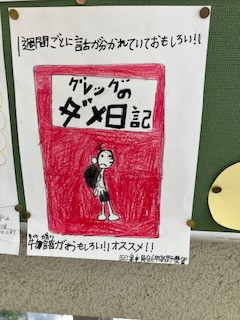 1週間ごとに話が分かれていておもしろい!!
グレッグの
ダメ日記
物語がおもしろい!!オススメ!!